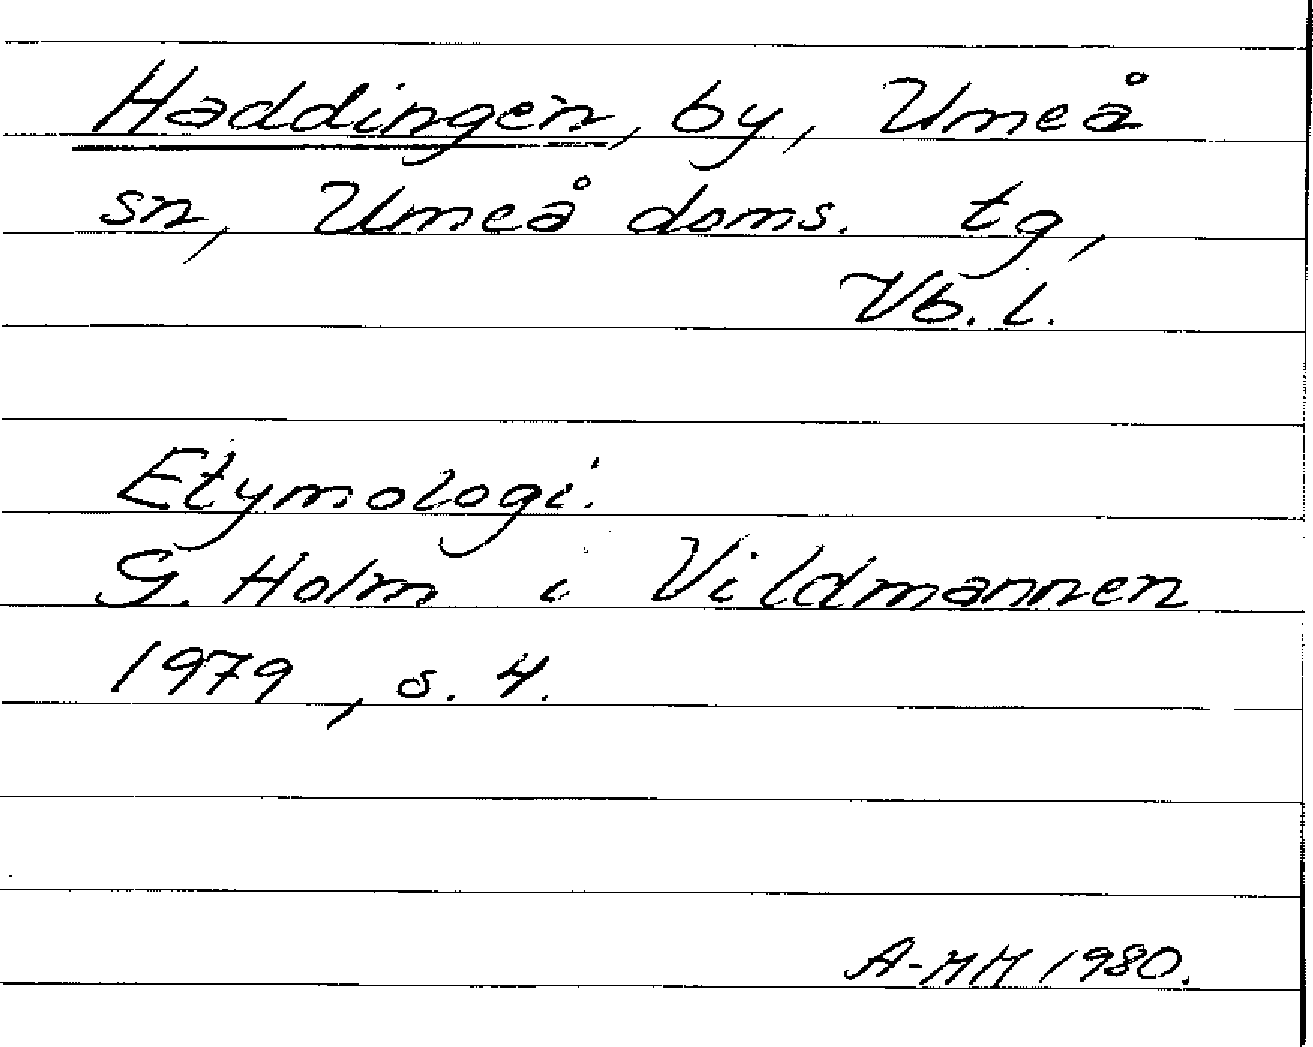 Haddingen, by, Umeå
sn, Umeå doms. tg,
Vb. l.
Etymologi:
G. Holm i Vildmannen
1979, s. 4.
A-MH 1980.